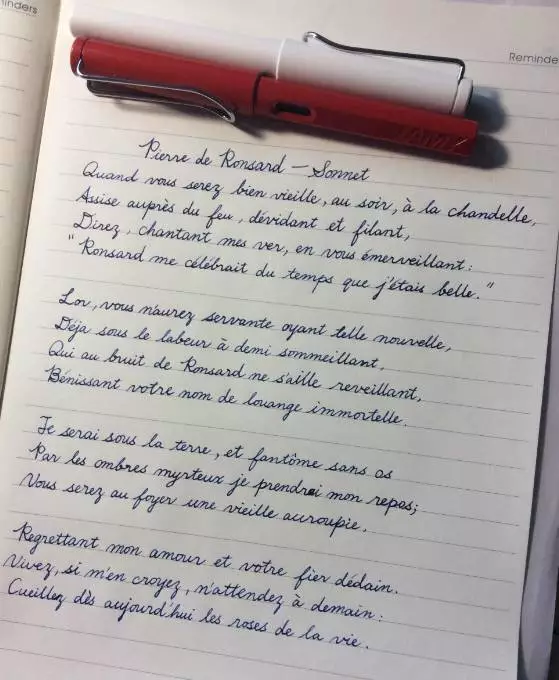 inders
Reminde
LAMY
Pierre de Ronsard – Sonnet
Quand vous serez bien vieille, au soir, à la chandelle,
Assise auprès du feu, dévidant et filant,
Direz, chantant mes ver, en vous émerveillant:
"Ronsard me célébrait du temps que j'étais belle."
Lor, vous n'aurez servante oyant telle nouvelle,
Déja sous le labeur à demi sommeillant,
Qui au bruit de Ronsard ne s'aille reveillant,
Bénissant votre nom de louange immortelle.
Je serai sous la terre, et fantôme sans os
Par les ombres myrteux je prendrai mon repos;
Vous serez au foyer une vieille accroupie.
Regrettant mon amour et votre fier dédain.
Vivez, si m'en croyez, n'attendez à demain:
Cueillez dès aujourd'hui les roses de la vie.